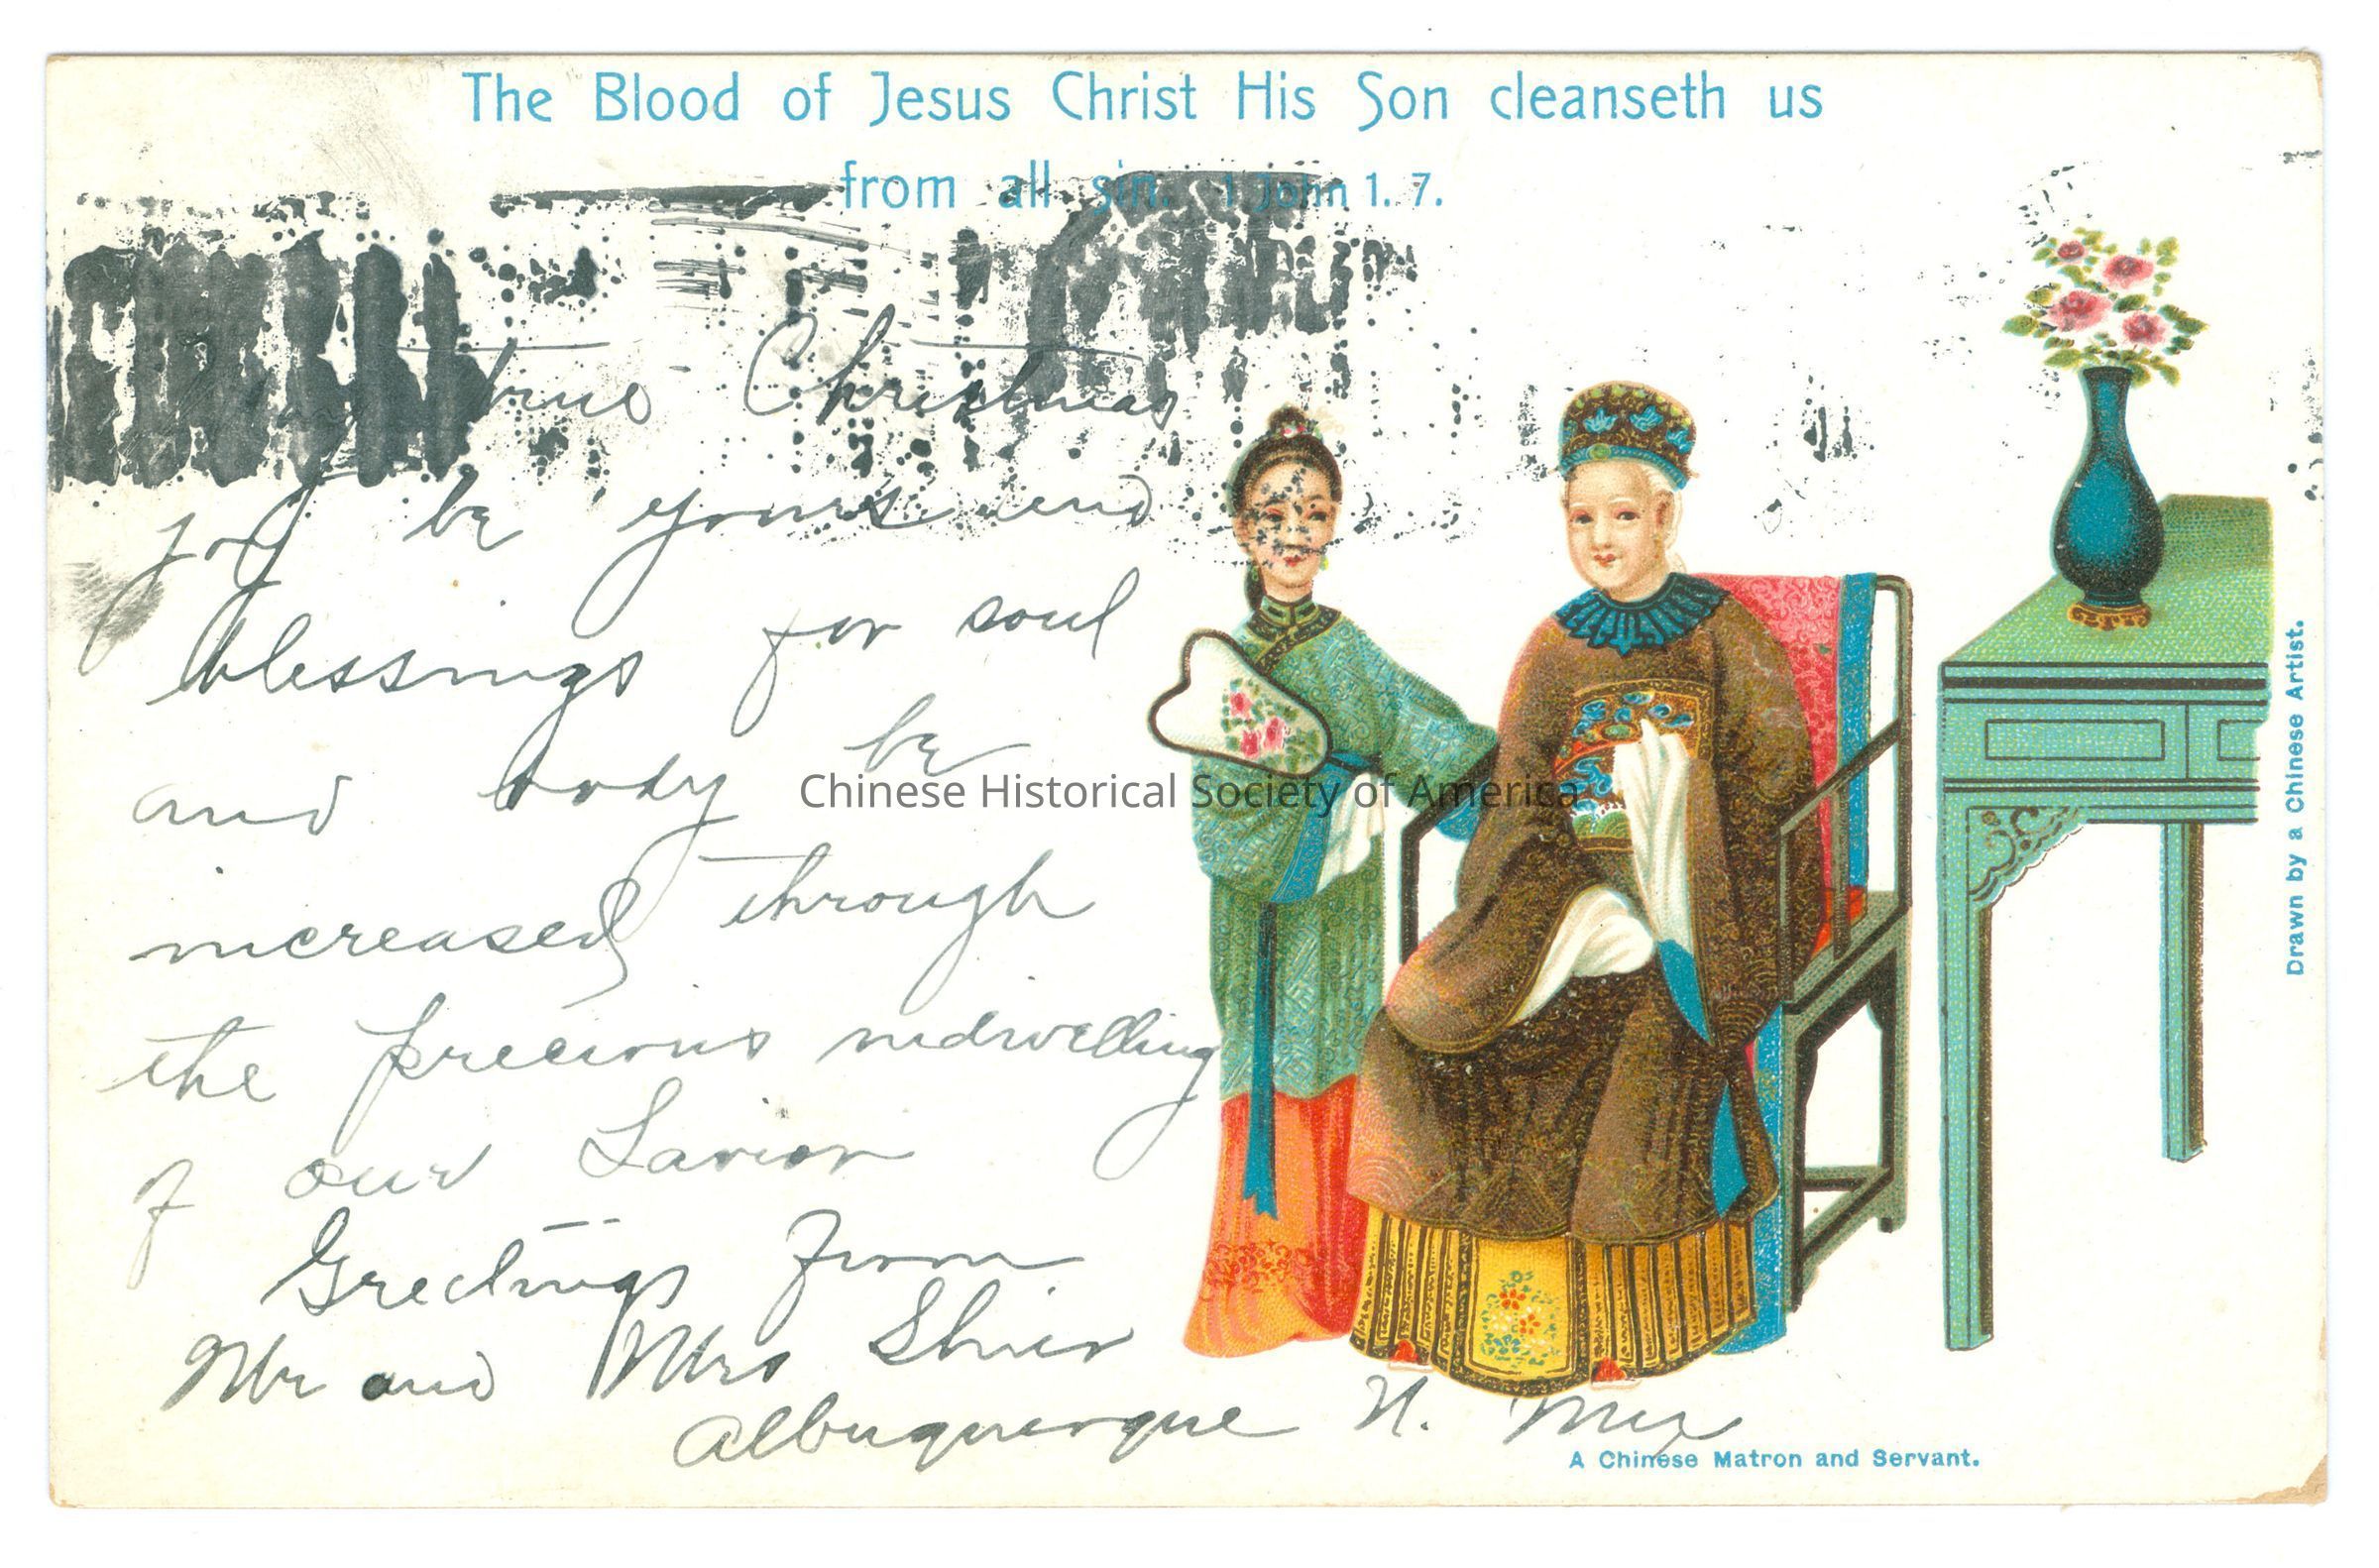 The Blood of Jesus Christ His Son cleanseth us
from all sin. 1 John 1. 7.
true Christmas
joy be yours and
blessings for soul
and body be
increased through
the precious indwelling
of our Savior
Greetings from
Mr and Mrs
Albuquerque N. Mex
A Chinese Matron and Servant.
Drawn by a Chinese Artist.
Chinese Historical Society of America